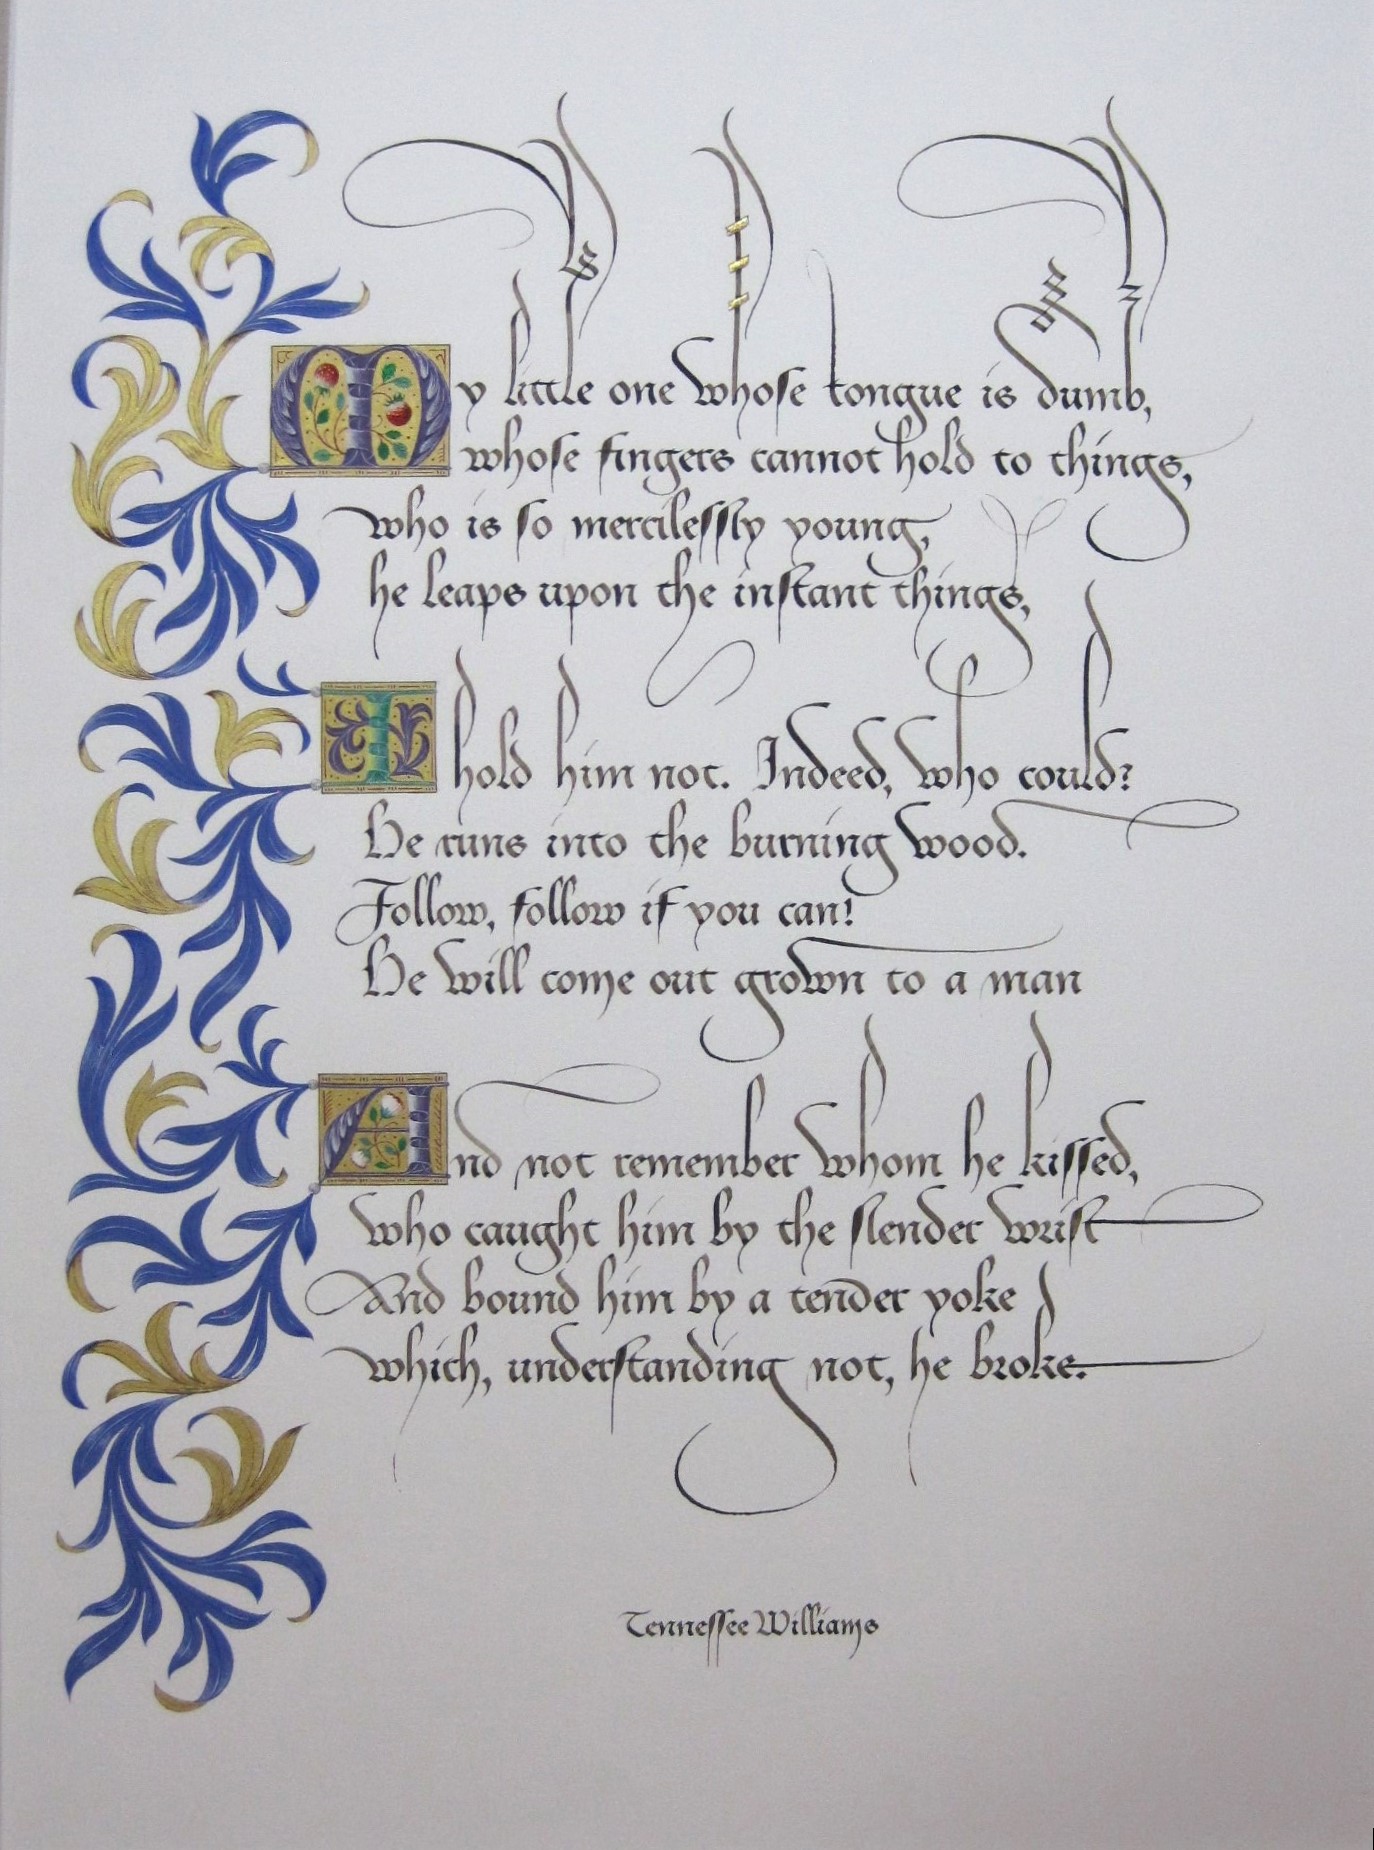 My little one whose tongue is dumb,
whose fingers cannot hold to things,
who is so mercilessly young,
he leaps upon the instant things,
I hold him not. Indeed, who could?
He runs into the burning wood.
Follow, follow if you can!
He will come out grown to a man
And not remember whom he kissed,
who caught him by the slender wrist
And bound him by a tender yoke
which, understanding not, he broke.
Tennessee Williams